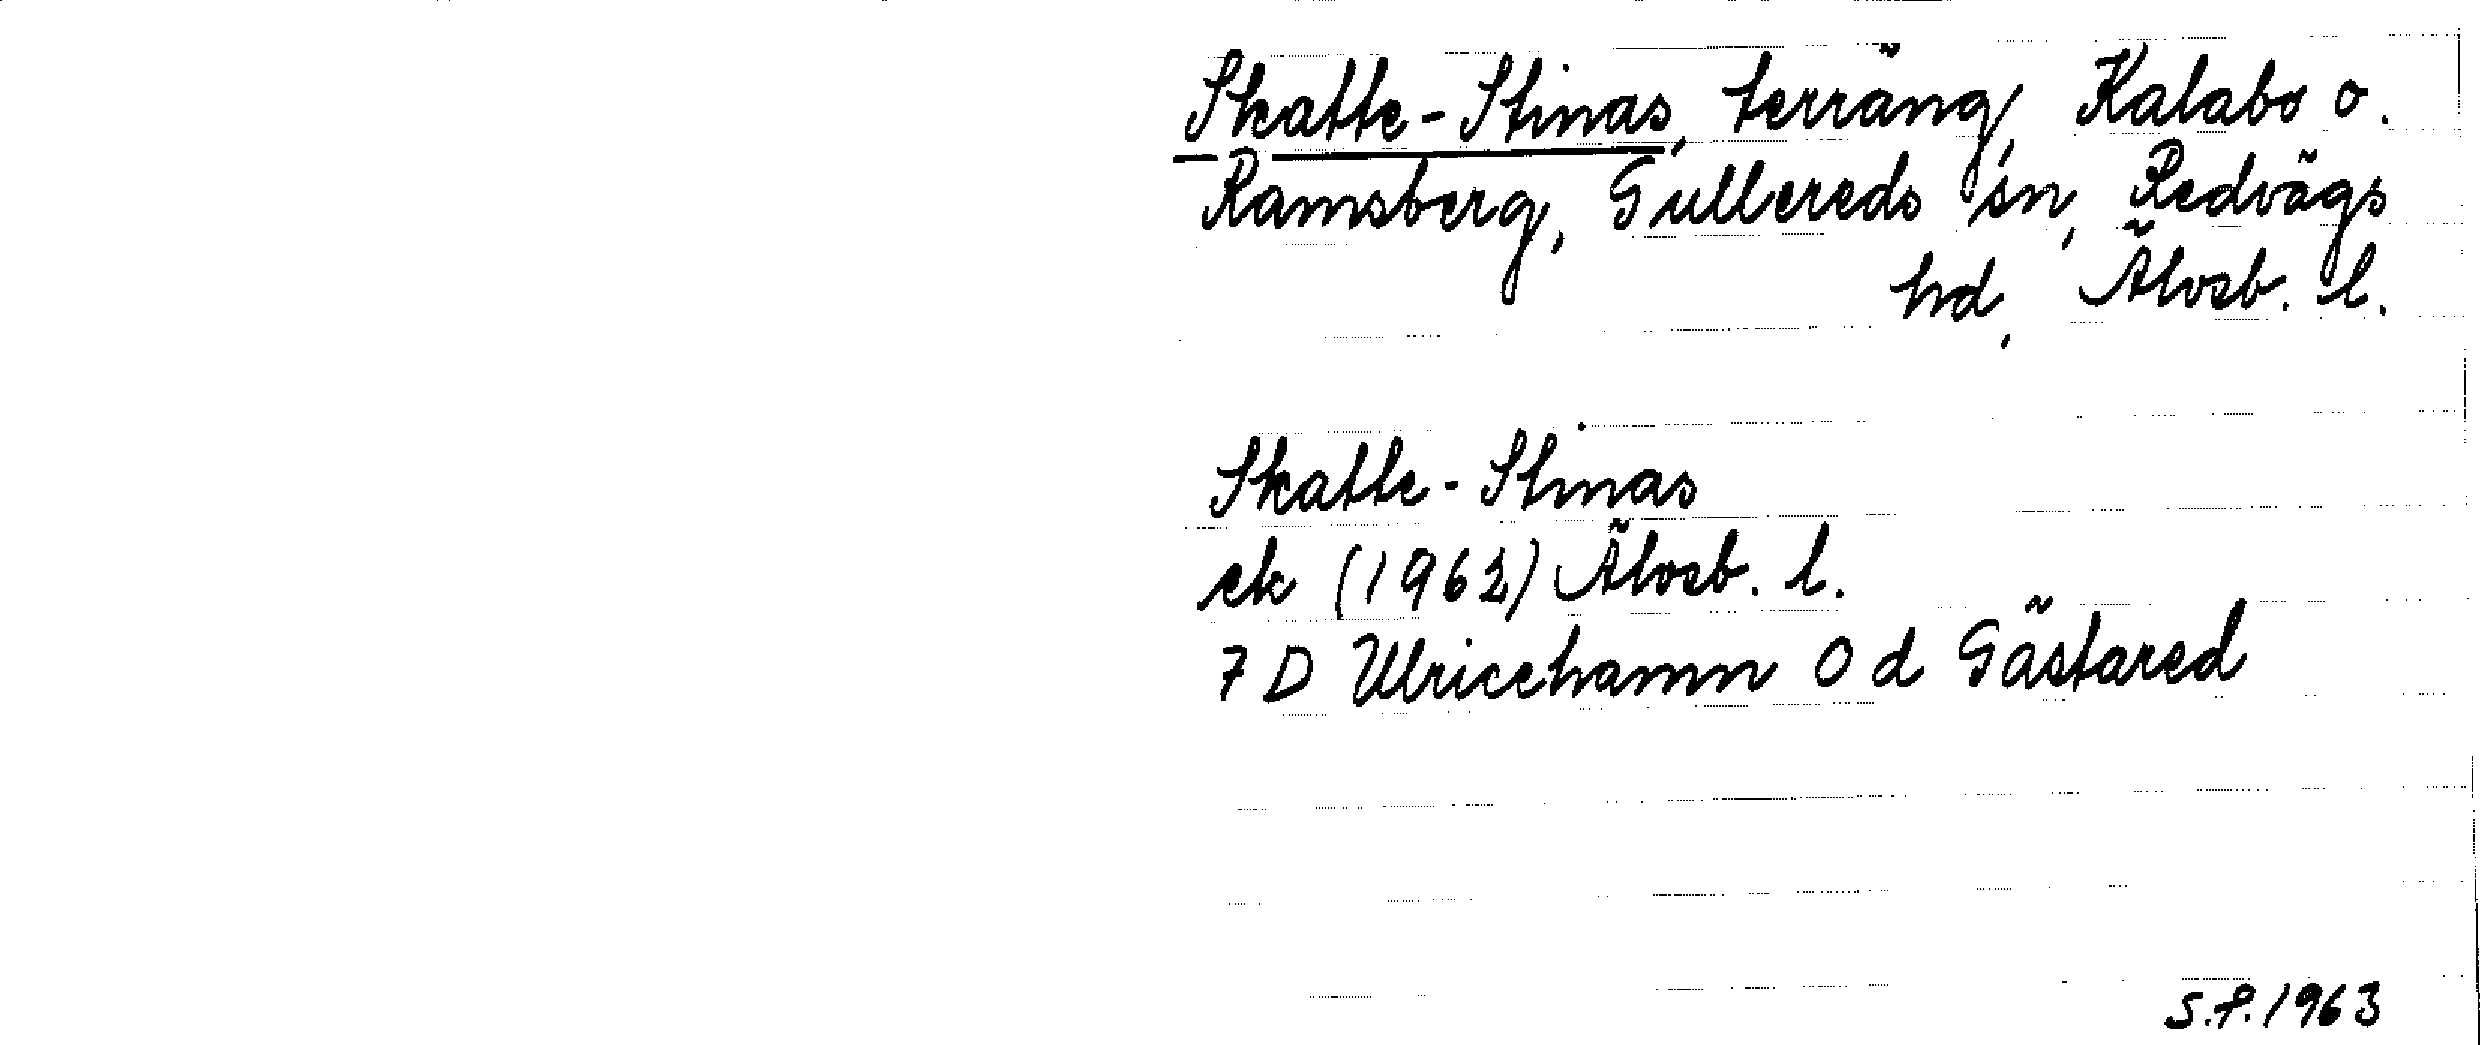 Skatte-Stinas, terräng, Kalabo o.
Ramsberg, Gullereds sn, Redvägs
hd, Älvsb. l.
Skatte-Stinas
ek (1962) Älvsb. l.
7 D Ulricehamn 0 d Gästared
S.F. 1963